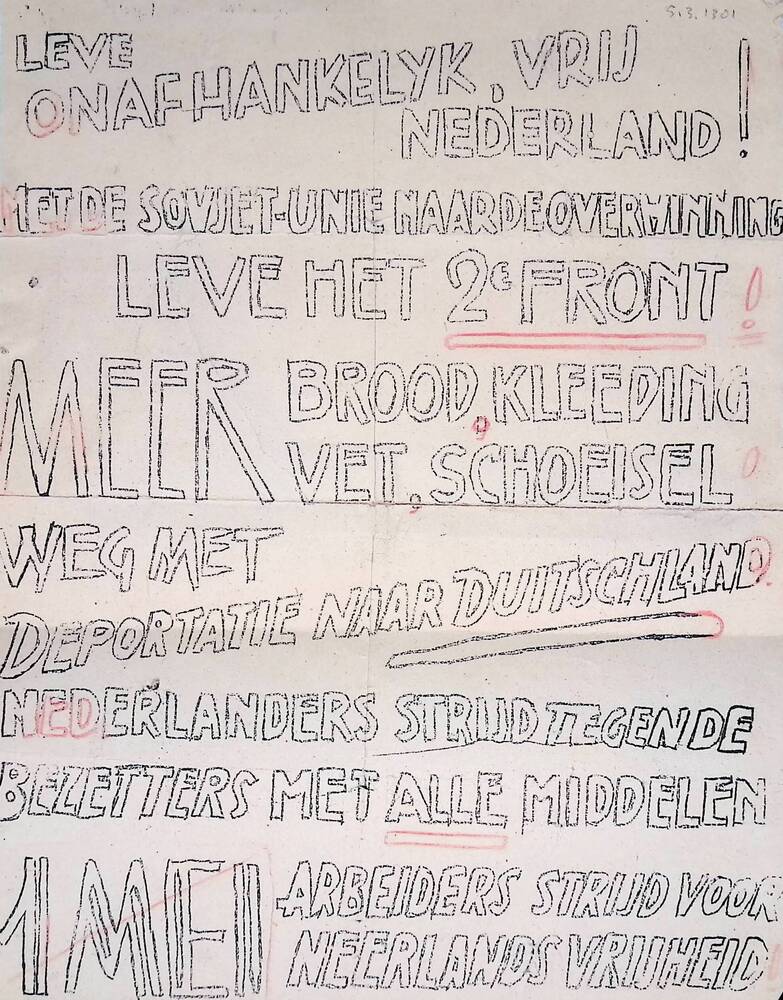 5.3.1301
LEVE
ONAFHANKELYK, VRIJ
NEDERLAND!
MET DE SOVJET-UNIE NAAR DE OVERWINNING
LEVE HET 2e FRONT!
MEER BROOD, KLEEDING
VET, SCHOEISEL!
WEG MET
DEPORTATIE NAAR DUITSCHLAND!
NEDERLANDERS STRIJD TEGEN DE
BEZETTERS MET ALLE MIDDELEN
1 MEI ARBEIDERS STRIJD VOOR
NEERLANDS VRIJHEID!